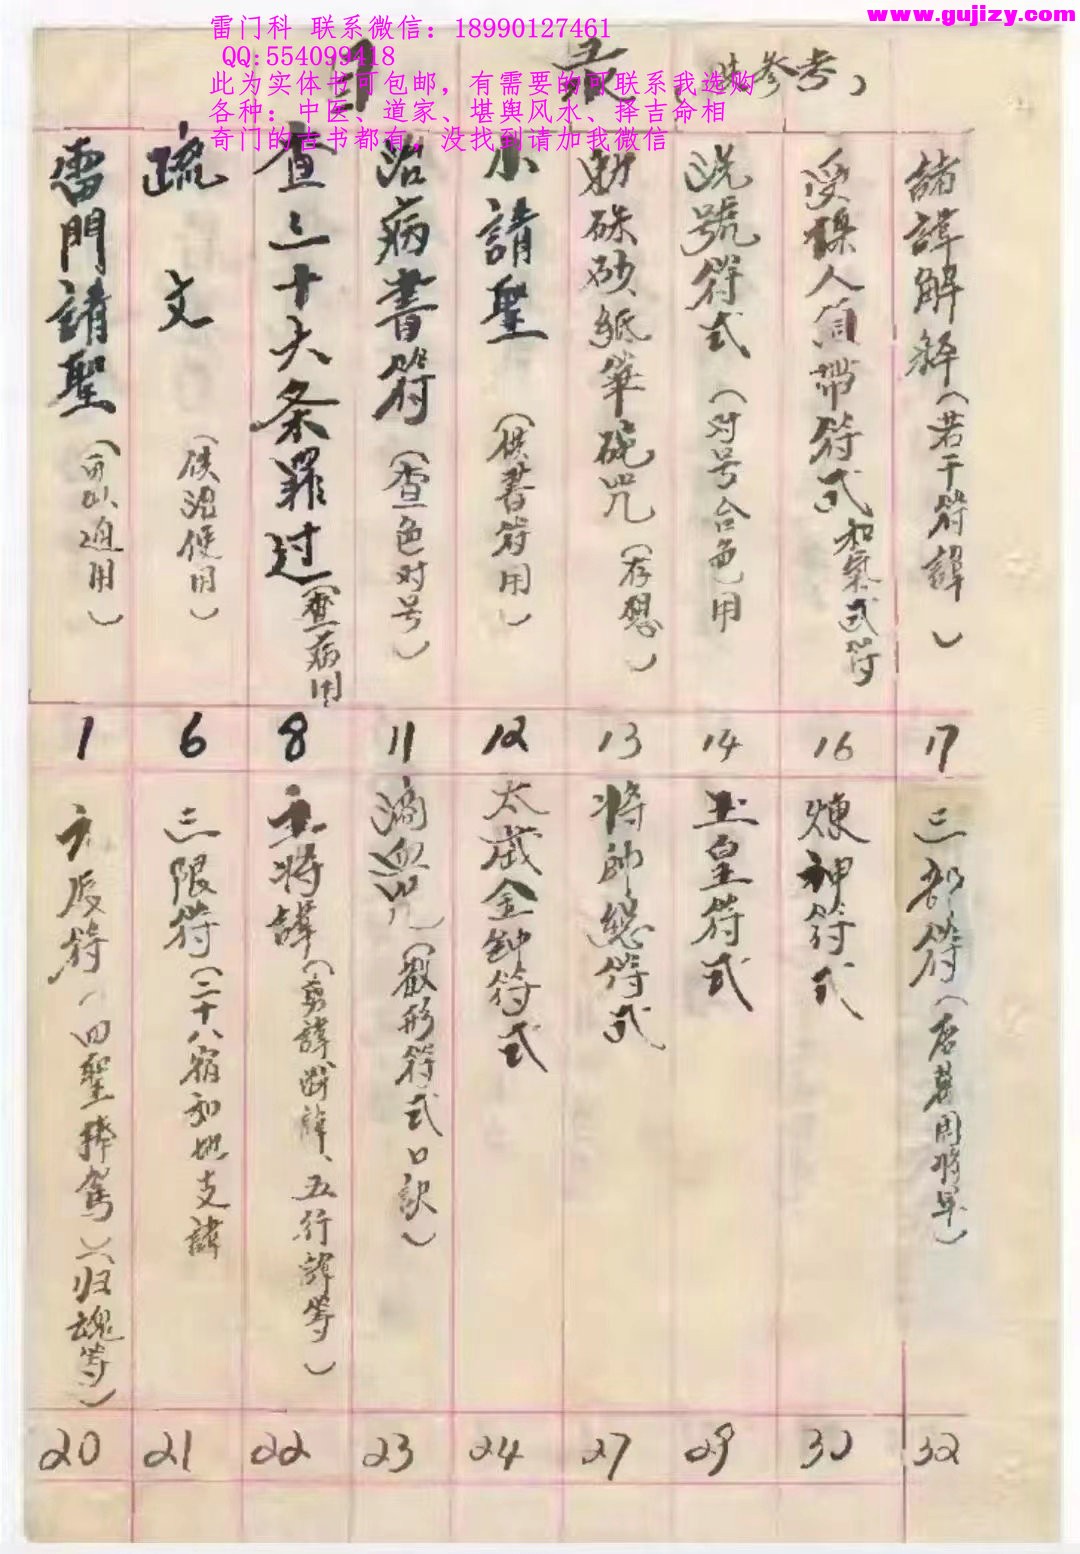 雷门科 联系微信：18990127461
QQ:554099418
此为实体书可包邮，有需要的可联系我选购
各种：中医、道家、堪舆风水、择吉命相
奇门的古书都有，没找到请加我微信
www.gujizy.com
目 录
参考）
雷門請聖（可以通用） 1
疏文（供治使用） 6
查三十六条罪过（查病用） 8
治病書符（查色对号） 11
小請聖（供書符用） 12
勅硃砂紙筆碗咒（存想） 13
洗號符式（对号合色用） 14
受禄人佩帶符式 和氣式符 16
諸諱解解（若干符諱） 17
符（四聖捧駕）（归魂等） 20
三限符（二十八宿和地支諱 21
主将諱（剪諱、断諱、五行諱等） 22
滴血咒（形符式口訣） 23
太歲金鈡符式 24
将帥總符式 27
玉皇符式 29
煉神符式 30
三部符（用将 ） 32